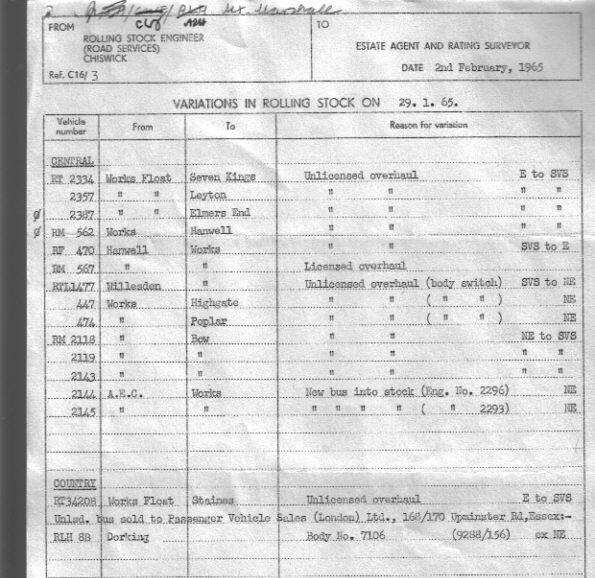 Mr. Marshall
FROM
ROLLING STOCK ENGINEER
(ROAD SERVICES)
CHISWICK
Ref. C16/ 3
TO
ESTATE AGENT AND RATING SURVEYOR
DATE 2nd February, 1965
VARIATIONS IN ROLLING STOCK ON 29. 1. 65.
Vehicle number From To Reason for variation
CENTRAL
RT 2334 Works Float Seven Kings Unlicensed overhaul E to SVS
2357 " " Leyton " " " "
ø 2387 " " Elmers End " " " "
ø RM 562 Works Hanwell " " " "
RF 470 Hanwell Works " " SVS to E
RM 567 " " Licensed overhaul
RTL1477 Willesden " Unlicensed overhaul (body switch) SVS to NE
447 Works Highgate " " ( " " ) NE
474 " Poplar " " ( " " ) NE
RM 2118 " Bow " " NE to SVS
2119 " " " " " "
2143 " " " " " "
2144 A.E.C. Works New bus into stock (Eng. No. 2296) NE
2145 " " " " " " ( " 2293) NE
COUNTRY
RT3420B Works Float Staines Unlicensed overhaul E to SVS
Unlsd. bus sold to Passenger Vehicle Sales (London) Ltd., 168/170 Upminster Rd,Essex:-
RLH 8B Dorking Body No. 7106 (9288/156) ex NE